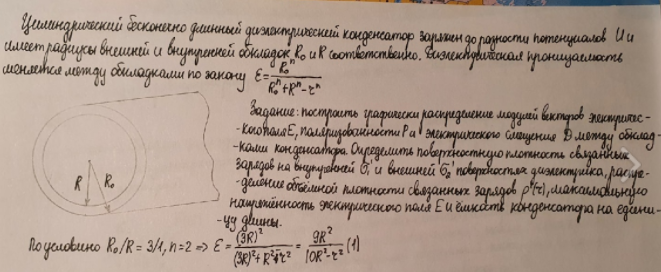 Цилиндрический бесконечно длинный диэлектрический конденсатор заряжен до разности потенциалов U и
имеет радиусы внешней и внутренней обкладок R₀ и R соответственно. Диэлектрическая проницаемость
меняется между обкладками по закону ε = R₀ⁿ/(R₀ⁿ+Rⁿ-rⁿ)
Задание: построить графически распределение модулей векторов электричес-
-кого поля E, поляризованности P и электрического смещения D между обклад-
-ками конденсатора. Определить поверхностную плотность связанных
зарядов на внутренней σ₁' и внешней σ₂' поверхностях диэлектрика, распре-
-деление объёмной плотности связанных зарядов ρ'(r), максимальную
напряжённость электрического поля E и ёмкость конденсатора на едини-
-цу длины.
R R₀
По условию R₀/R = 3/1, n=2 => ε = (3R)²/((3R)²+R²-r²) = 9R²/(10R²-r²) (1)